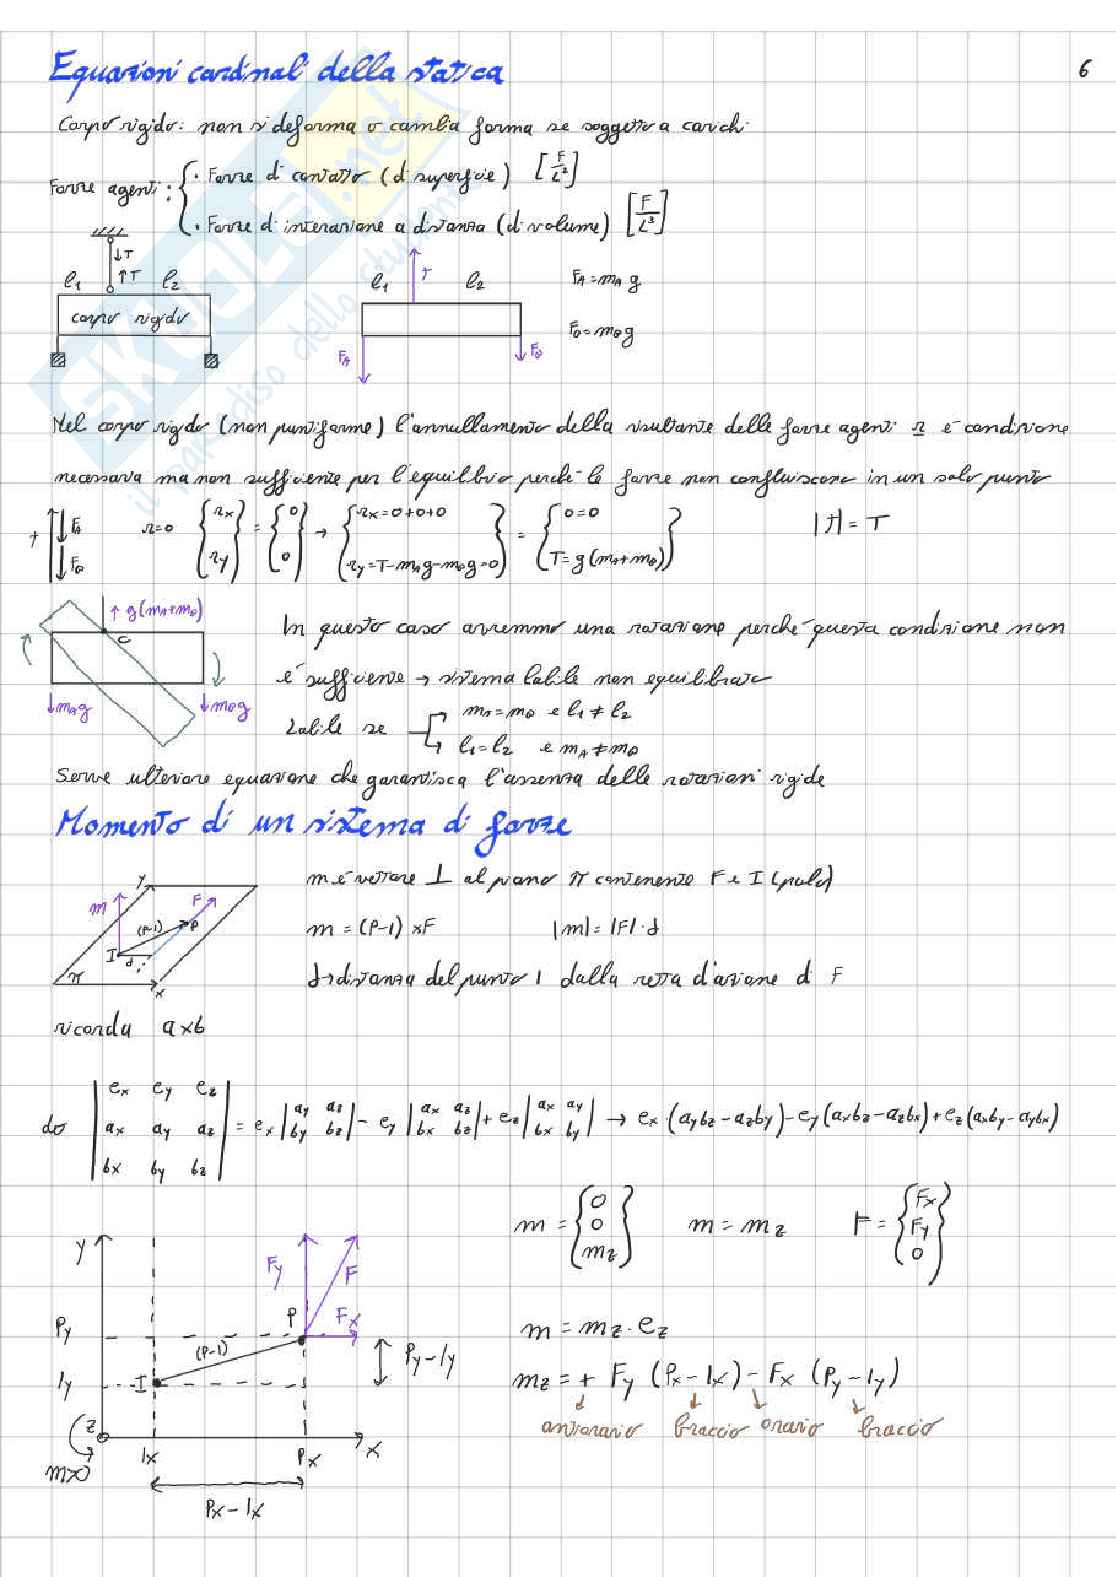 Equazioni cardinali della statica
6
Corpo rigido: non si deforma o cambia forma se soggetto a carichi
Forze agenti: { · Forze di contatto (di superficie) [F/L²]
· Forze di interazione a distanza (di volume) [F/L³]
↓T
↑T
l₁ l₂
corpo rigido
T
l₁ l₂
F_A = m_A g
F_B = m_B g
F_A F_B
Nel corpo rigido (non puntiforme) l'annullamento della risultante delle forze agenti r è condizione
necessaria ma non sufficiente per l'equilibrio perché le forze non confluiscono in un solo punto
+ F_A F_B
r=0 {r_x r_y} = {0 0} → {r_x=0+0+0 r_y=T-m_A g-m_B g=0} = {0=0 T=g(m_A+m_B)}
|T| = T
↑ g(m_A+m_B)
C
↓m_A g ↓m_B g
In questo caso avremmo una rotazione perché questa condizione non
è sufficiente → sistema labile non equilibrato
Labile se m_A=m_B e l₁ ≠ l₂
l₁=l₂ e m_A≠m_B
Serve ulteriore equazione che garantisca l'assenza delle rotazioni rigide
Momento di un sistema di forze
y m F (P-I) P I d π x
m è vettore ⊥ al piano π contenente F e I (polo)
m = (P-I) × F |m| = |F|·d
d→distanza del punto I dalla retta d'azione di F
ricorda a×b
do |e_x e_y e_z a_x a_y a_z b_x b_y b_z| = e_x |a_y a_z b_y b_z| - e_y |a_x a_z b_x b_z| + e_z |a_x a_y b_x b_y| → e_x (a_y b_z - a_z b_y) - e_y (a_x b_z - a_z b_x) + e_z (a_x b_y - a_y b_x)
m = {0 0 m_z} m = m_z F = {F_x F_y 0}
y F_y F
P F_x
P_y
(P-I)
P_y-I_y
I_y I
z
m>0
I_x P_x x
P_x-I_x
m = m_z · e_z
m_z = + F_y (P_x - I_x) - F_x (P_y - I_y)
antiorario braccio orario braccio
SKUOLA.net
il paradiso dello studente